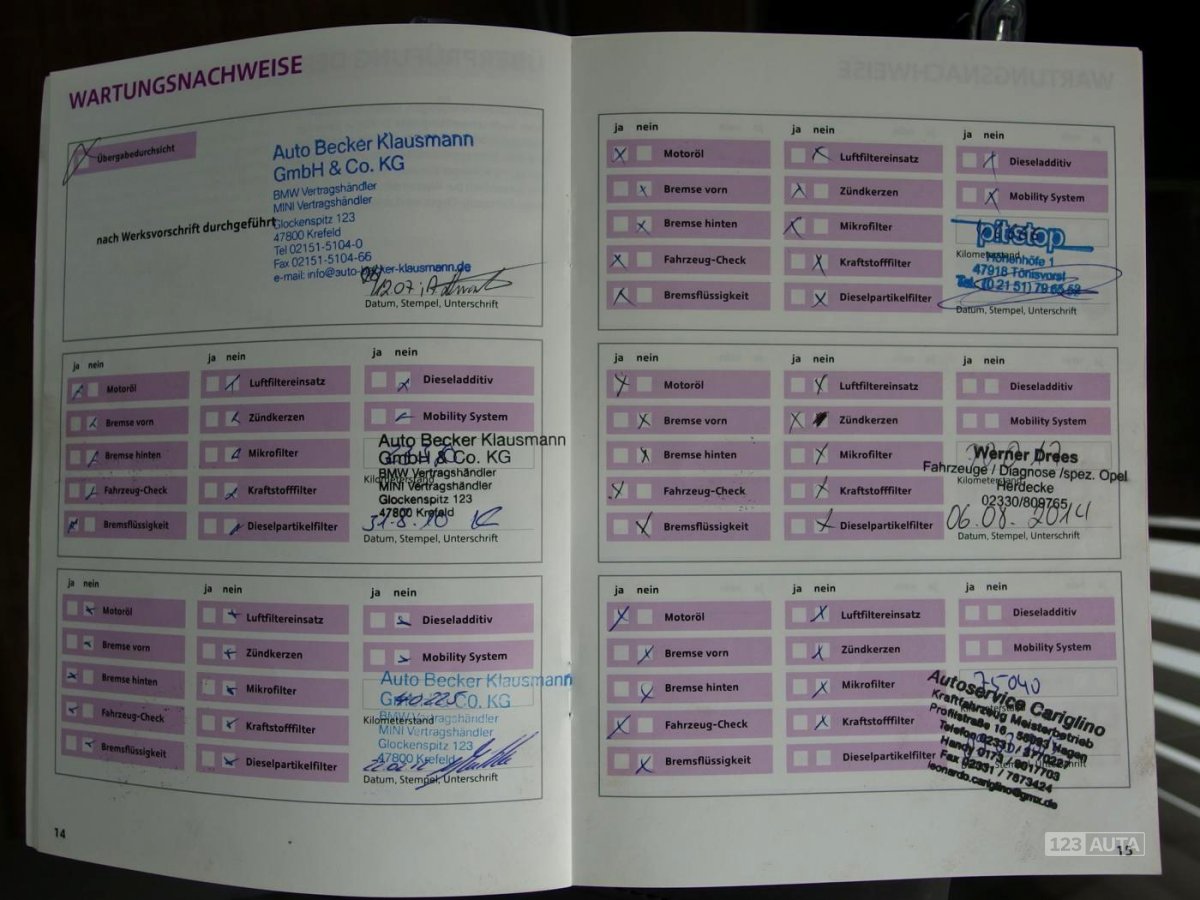 WARTUNGSNACHWEISE
Übergabedurchsicht
nach Werksvorschrift durchgeführt
Auto Becker Klausmann
GmbH & Co. KG
BMW Vertragshändler
MINI Vertragshändler
Glockenspitz 123
47800 Krefeld
Tel 02151-5104-0
Fax 02151-5104-66
e-mail: info@auto-becker-klausmann.de
Datum, Stempel, Unterschrift
ja nein
Motoröl
Bremse vorn
Bremse hinten
Fahrzeug-Check
Bremsflüssigkeit
ja nein
Luftfiltereinsatz
Zündkerzen
Mikrofilter
Kraftstofffilter
Dieselpartikelfilter
ja nein
Dieseladditiv
Mobility System
Auto Becker Klausmann
GmbH & Co. KG
BMW Vertragshändler
Kilometerstand
MINI Vertragshändler
Glockenspitz 123
47800 Krefeld
31.8.10
Datum, Stempel, Unterschrift
ja nein
Motoröl
Bremse vorn
Bremse hinten
Fahrzeug-Check
Bremsflüssigkeit
ja nein
Luftfiltereinsatz
Zündkerzen
Mikrofilter
Kraftstofffilter
Dieselpartikelfilter
ja nein
Dieseladditiv
Mobility System
Auto Becker Klausmann
GmbH & Co. KG
BMW Vertragshändler
Kilometerstand
MINI Vertragshändler
Glockenspitz 123
47800 Krefeld
Datum, Stempel, Unterschrift
14
ja nein
Motoröl
Bremse vorn
Bremse hinten
Fahrzeug-Check
Bremsflüssigkeit
ja nein
Luftfiltereinsatz
Zündkerzen
Mikrofilter
Kraftstofffilter
Dieselpartikelfilter
ja nein
Dieseladditiv
Mobility System
pitstop
Kilometerstand
Höhenhöfe 1
47918 Tönisvorst
Tel. (0 21 51) 79 65 52
Datum, Stempel, Unterschrift
ja nein
Motoröl
Bremse vorn
Bremse hinten
Fahrzeug-Check
Bremsflüssigkeit
ja nein
Luftfiltereinsatz
Zündkerzen
Mikrofilter
Kraftstofffilter
Dieselpartikelfilter
ja nein
Dieseladditiv
Mobility System
Werner Drees
Fahrzeuge / Diagnose /spez. Opel
Kilometerstand
Herdecke
02330/809765
06.08.2014
Datum, Stempel, Unterschrift
ja nein
Motoröl
Bremse vorn
Bremse hinten
Fahrzeug-Check
Bremsflüssigkeit
ja nein
Luftfiltereinsatz
Zündkerzen
Mikrofilter
Kraftstofffilter
Dieselpartikelfilter
ja nein
Dieseladditiv
Mobility System
75040
Autoservice Cariglino
Kraftfahrzeug Meisterbetrieb
Profilstraße 16, 58093 Hagen
Telefon 02331 / 3770227
Handy 0173 / 9017703
Fax 02331 / 7873424
leonardo.cariglino@gmx.de
15
123 AUTA